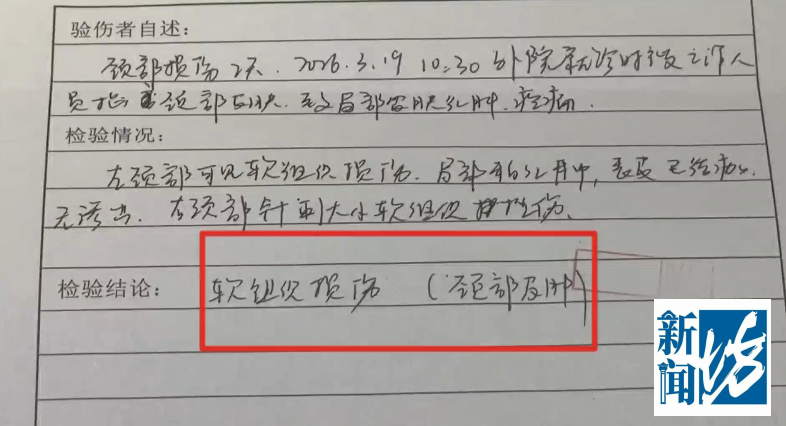 验伤者自述:
颈部损伤2天. 2026.3.19 10:30 外院就诊时被工作人
员 颈部皮肤. 致局部皮肤红肿. 疼痛.
检验情况:
左颈部可见软组织损伤. 局部稍红肿, 表皮已结痂.
无渗出. 左颈部针刺大小软组织 伤.
检验结论: 软组织损伤 (颈部皮肤)
新闻坊